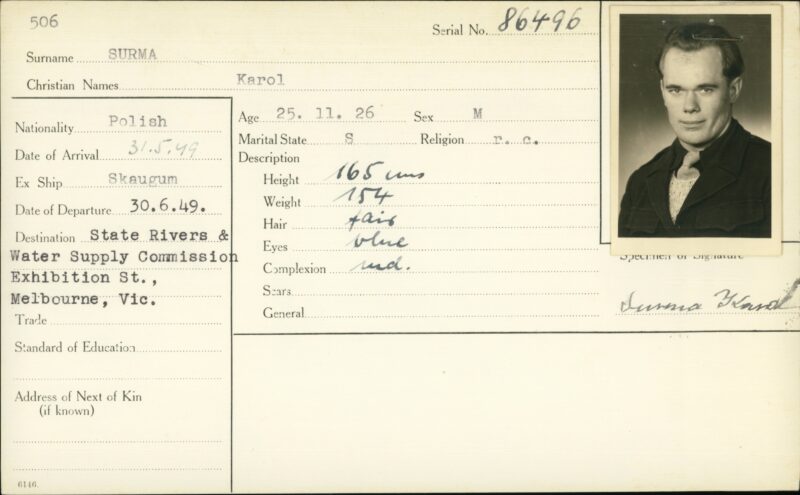 506
Serial No. 86496
Surname SURMA
Christian Names Karol
Nationality Polish
Date of Arrival 31.5.49
Ex Ship Skaugum
Date of Departure 30.6.49.
Destination State Rivers &
Water Supply Commission
Exhibition St.,
Melbourne, Vic.
Trade
Standard of Education
Address of Next of Kin
(if known)
6146
Age 25. 11. 26 Sex M
Marital State S Religion r. c.
Description
Height 165 cms
Weight 154
Hair fair
Eyes blue
Complexion md.
Scars
General
Specimen of Signature
Surma Karol